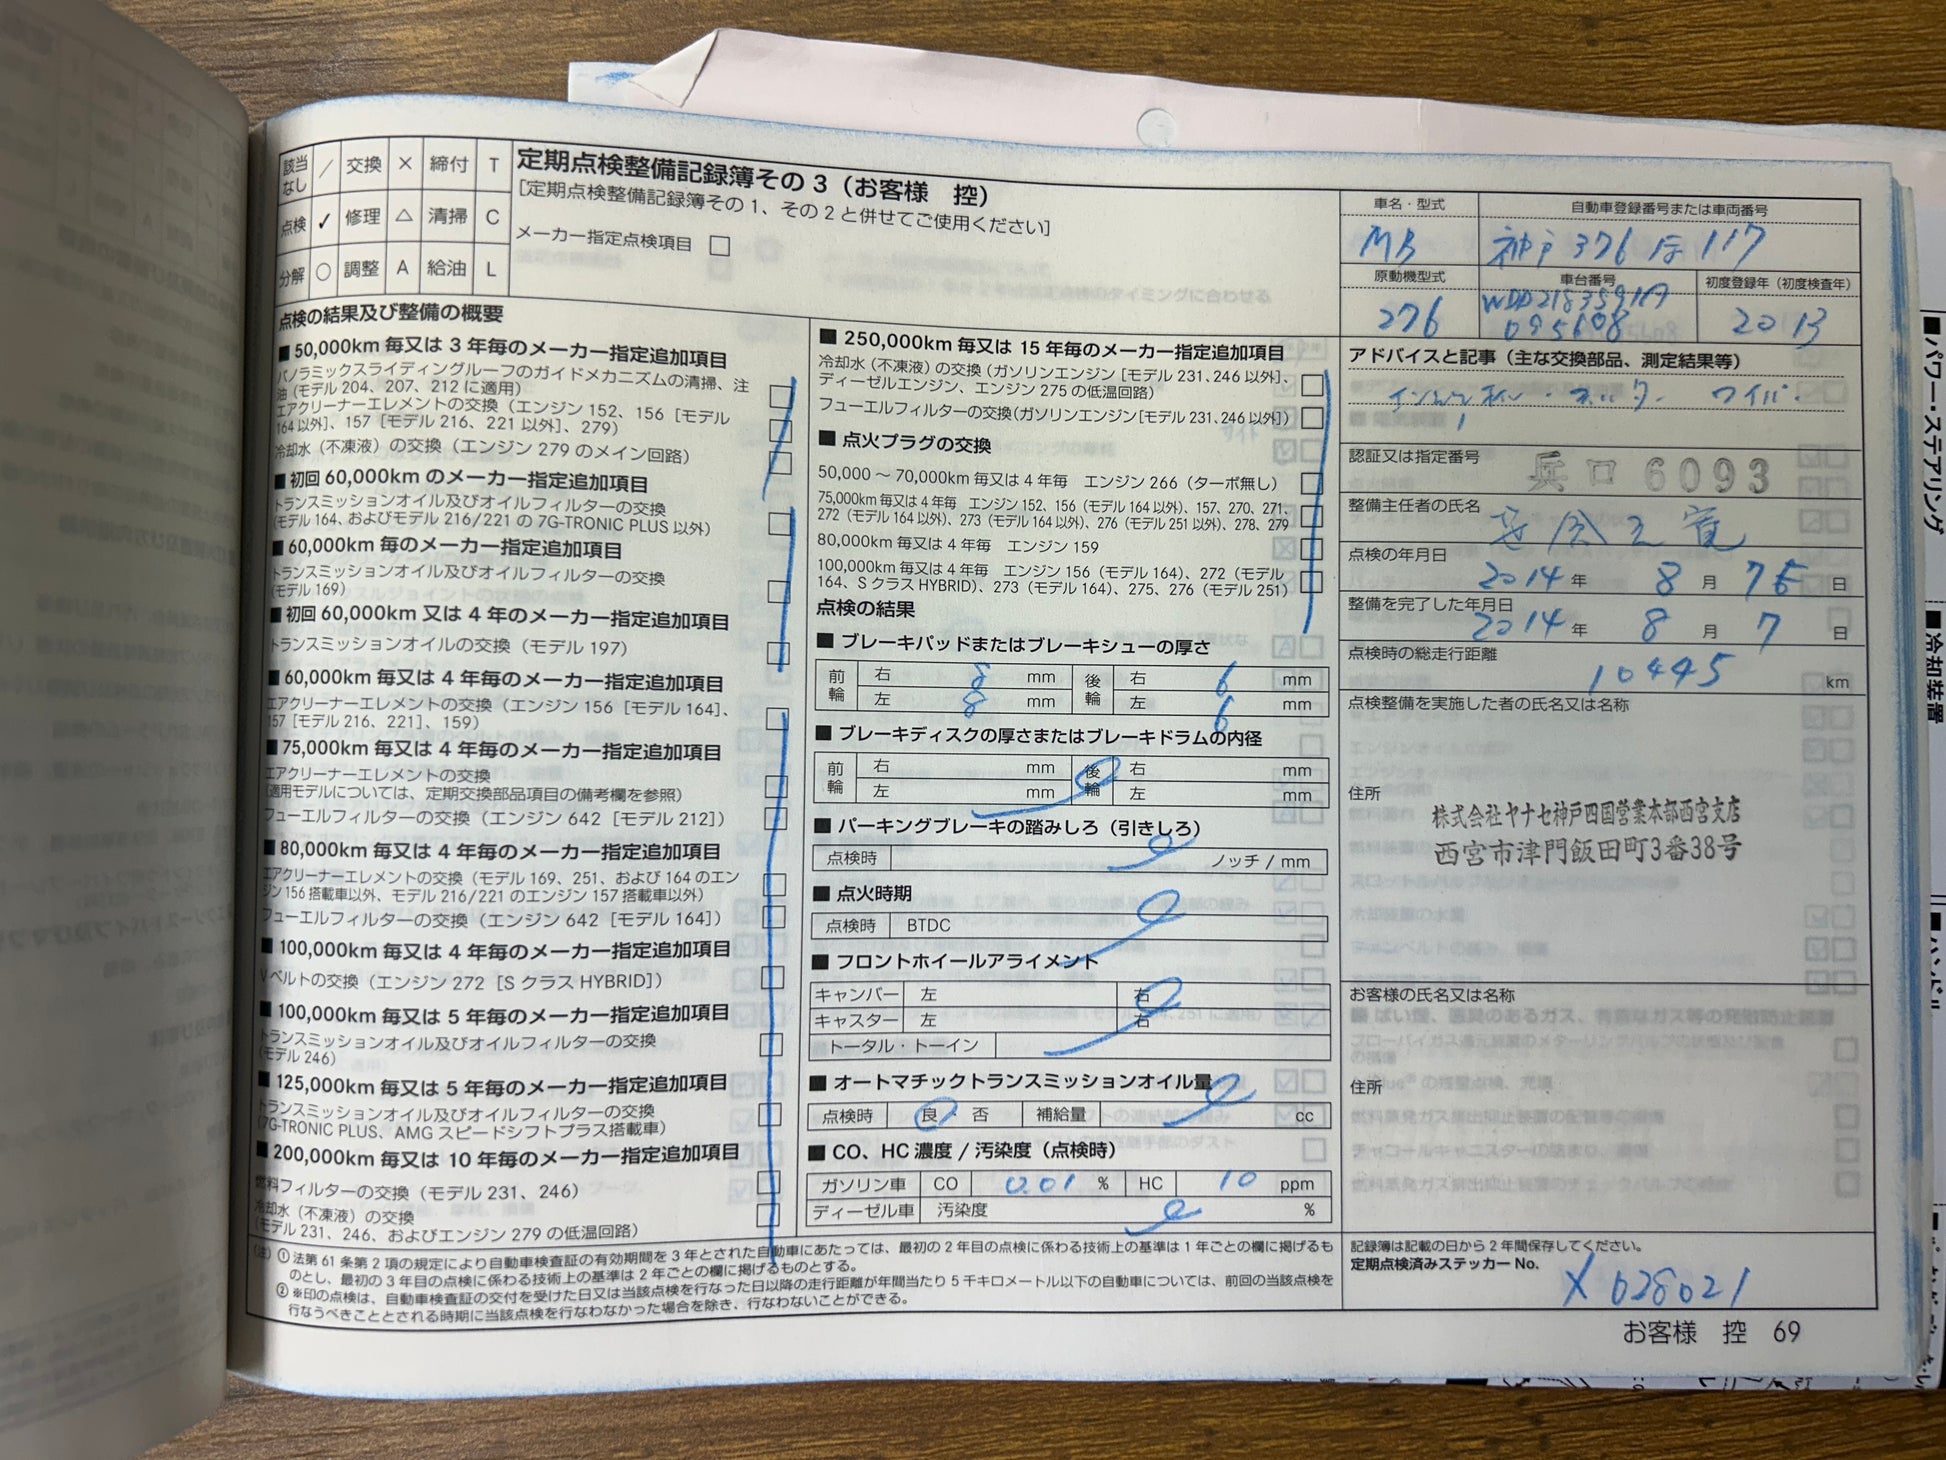 該当なし / 交換 × 締付 T
点検 ✓ 修理 △ 清掃 C
分解 ○ 調整 A 給油 L
定期点検整備記録簿その3（お客様 控）
[定期点検整備記録簿その1、その2と併せてご使用ください]
メーカー指定点検項目 □
点検の結果及び整備の概要
■ 50,000km 毎又は 3 年毎のメーカー指定追加項目
パノラミックスライディングルーフのガイドメカニズムの清掃、注
油（モデル 204、207、212 に適用）
エアクリーナーエレメントの交換（エンジン 152、156［モデル
164 以外］、157［モデル 216、221 以外］、279）
冷却水（不凍液）の交換（エンジン 279 のメイン回路）
■ 初回 60,000km のメーカー指定追加項目
トランスミッションオイル及びオイルフィルターの交換
（モデル 164、およびモデル 216/221 の 7G-TRONIC PLUS 以外）
■ 60,000km 毎のメーカー指定追加項目
トランスミッションオイル及びオイルフィルターの交換
（モデル 169）
■ 初回 60,000km 又は 4 年毎のメーカー指定追加項目
トランスミッションオイルの交換（モデル 197）
■ 60,000km 毎又は 4 年毎のメーカー指定追加項目
エアクリーナーエレメントの交換（エンジン 156［モデル 164］、
157［モデル 216、221］、159）
■ 75,000km 毎又は 4 年毎のメーカー指定追加項目
エアクリーナーエレメントの交換
（適用モデルについては、定期交換部品項目の備考欄を参照）
フューエルフィルターの交換（エンジン 642［モデル 212］）
■ 80,000km 毎又は 4 年毎のメーカー指定追加項目
エアクリーナーエレメントの交換（モデル 169、251、および 164 のエン
ジン 156 搭載車以外、モデル 216/221 のエンジン 157 搭載車以外）
フューエルフィルターの交換（エンジン 642［モデル 164］）
■ 100,000km 毎又は 4 年毎のメーカー指定追加項目
V ベルトの交換（エンジン 272［S クラス HYBRID］）
■ 100,000km 毎又は 5 年毎のメーカー指定追加項目
トランスミッションオイル及びオイルフィルターの交換
（モデル 246）
■ 125,000km 毎又は 5 年毎のメーカー指定追加項目
トランスミッションオイル及びオイルフィルターの交換
（7G-TRONIC PLUS、AMG スピードシフトプラス搭載車）
■ 200,000km 毎又は 10 年毎のメーカー指定追加項目
燃料フィルターの交換（モデル 231、246）
冷却水（不凍液）の交換
（モデル 231、246、およびエンジン 279 の低温回路）
■ 250,000km 毎又は 15 年毎のメーカー指定追加項目
冷却水（不凍液）の交換（ガソリンエンジン［モデル 231、246 以外］、
ディーゼルエンジン、エンジン 275 の低温回路）
フューエルフィルターの交換（ガソリンエンジン［モデル 231、246 以外］）
■ 点火プラグの交換
50,000 ～ 70,000km 毎又は 4 年毎 エンジン 266（ターボ無し）
75,000km 毎又は 4 年毎 エンジン 152、156（モデル 164 以外）、157、270、271、
272（モデル 164 以外）、273（モデル 164 以外）、276（モデル 251 以外）、278、279
80,000km 毎又は 4 年毎 エンジン 159
100,000km 毎又は 4 年毎 エンジン 156（モデル 164）、272（モデル
164、S クラス HYBRID）、273（モデル 164）、275、276（モデル 251）
点検の結果
■ ブレーキパッドまたはブレーキシューの厚さ
前輪 右 8 mm 後輪 右 6 mm
左 8 mm 左 6 mm
■ ブレーキディスクの厚さまたはブレーキドラムの内径
前輪 右 mm 後輪 右 mm
左 mm 左 mm
■ パーキングブレーキの踏みしろ（引きしろ）
点検時 ノッチ / mm
■ 点火時期
点検時 BTDC
■ フロントホイールアライメント
キャンバー 左 右
キャスター 左 右
トータル・トーイン
■ オートマチックトランスミッションオイル量
点検時 良・否 補給量 cc
■ CO、HC 濃度 / 汚染度（点検時）
ガソリン車 CO 0.01 % HC 10 ppm
ディーゼル車 汚染度 %
車名・型式 自動車登録番号または車両番号
MB 神戸 376 117
原動機型式 車台番号 初度登録年（初度検査年）
276 WDD2183591A 095608 2013
アドバイスと記事（主な交換部品、測定結果等）
ワイパー
認証又は指定番号 兵 ロ 6093
整備主任者の氏名
点検の年月日 2014 年 8 月 日
整備を完了した年月日 2014 年 8 月 7 日
点検時の総走行距離 10445 km
点検整備を実施した者の氏名又は名称
住所
株式会社ヤナセ神戸四国営業本部西宮支店
西宮市津門飯田町3番38号
お客様の氏名又は名称
住所
記録簿は記載の日から 2 年間保存してください。
定期点検済みステッカー No.
X 028021
（注）① 法第 61 条第 2 項の規定により自動車検査証の有効期間を 3 年とされた自動車にあたっては、最初の 2 年目の点検に係わる技術上の基準は 1 年ごとの欄に掲げるも
のとし、最初の 3 年目の点検に係わる技術上の基準は 2 年ごとの欄に掲げるものとする。
② ※印の点検は、自動車検査証の交付を受けた日又は当該点検を行なった日以降の走行距離が年間当たり 5 千キロメートル以下の自動車については、前回の当該点検を
行なうべきこととされる時期に当該点検を行なわなかった場合を除き、行なわないことができる。
お客様 控 69
■パワー・ステアリング
■冷却装置